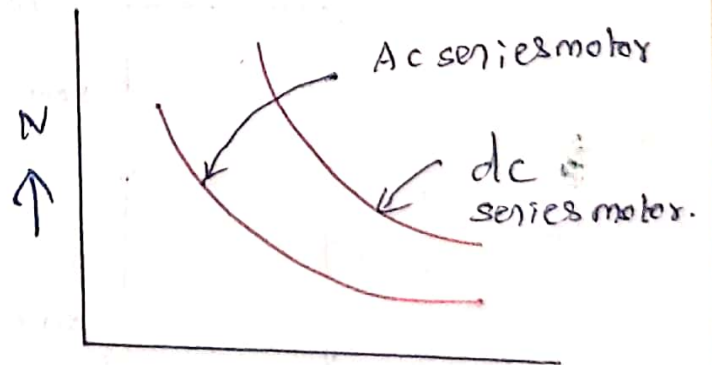 Ac seriesmotor
N
dc
seriesmotor.